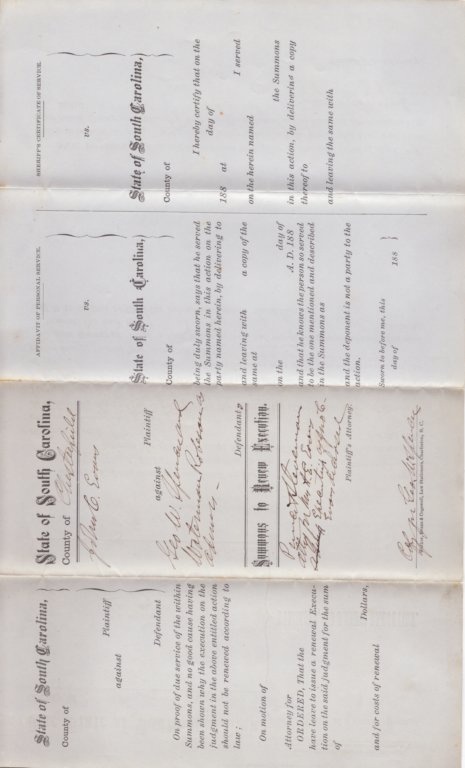 State of South Carolina,
County of
Plaintiff
against
Defendant
On proof of due service of the within
Summons, and no good cause having
been shown why the execution on the
judgment in the above entitled action
should not be renewed according to
law ;
On motion of
Attorney for
ORDERED, That the
have leave to issue a renewal Execu-
tion on the said judgment for the sum
of
Dollars,
and for costs of renewal
State of South Carolina,
County of Chesterfield
John C. Evans
Plaintiff
against
Geo W. and
Defendant
Summons to Renew Execution.
Plaintiff's Attorney.
AFFIDAVIT OF PERSONAL SERVICE.
vs.
State of South Carolina,
County of
being duly sworn, says that he served
the Summons in this action on the
party named herein, by delivering to
and leaving with a copy of the
same at
on the day of
A. D. 188
and that he knows the person so served
to be the one mentioned and described
in the Summons as
and the deponent is not a party to the
action.
Sworn to before me, this
day of 188
SHERIFF'S CERTIFICATE OF SERVICE.
vs.
State of South Carolina,
County of
I hereby certify that on the
day of
188 at I served
on the herein named
the Summons
in this action, by delivering a copy
thereof to
and leaving the same with